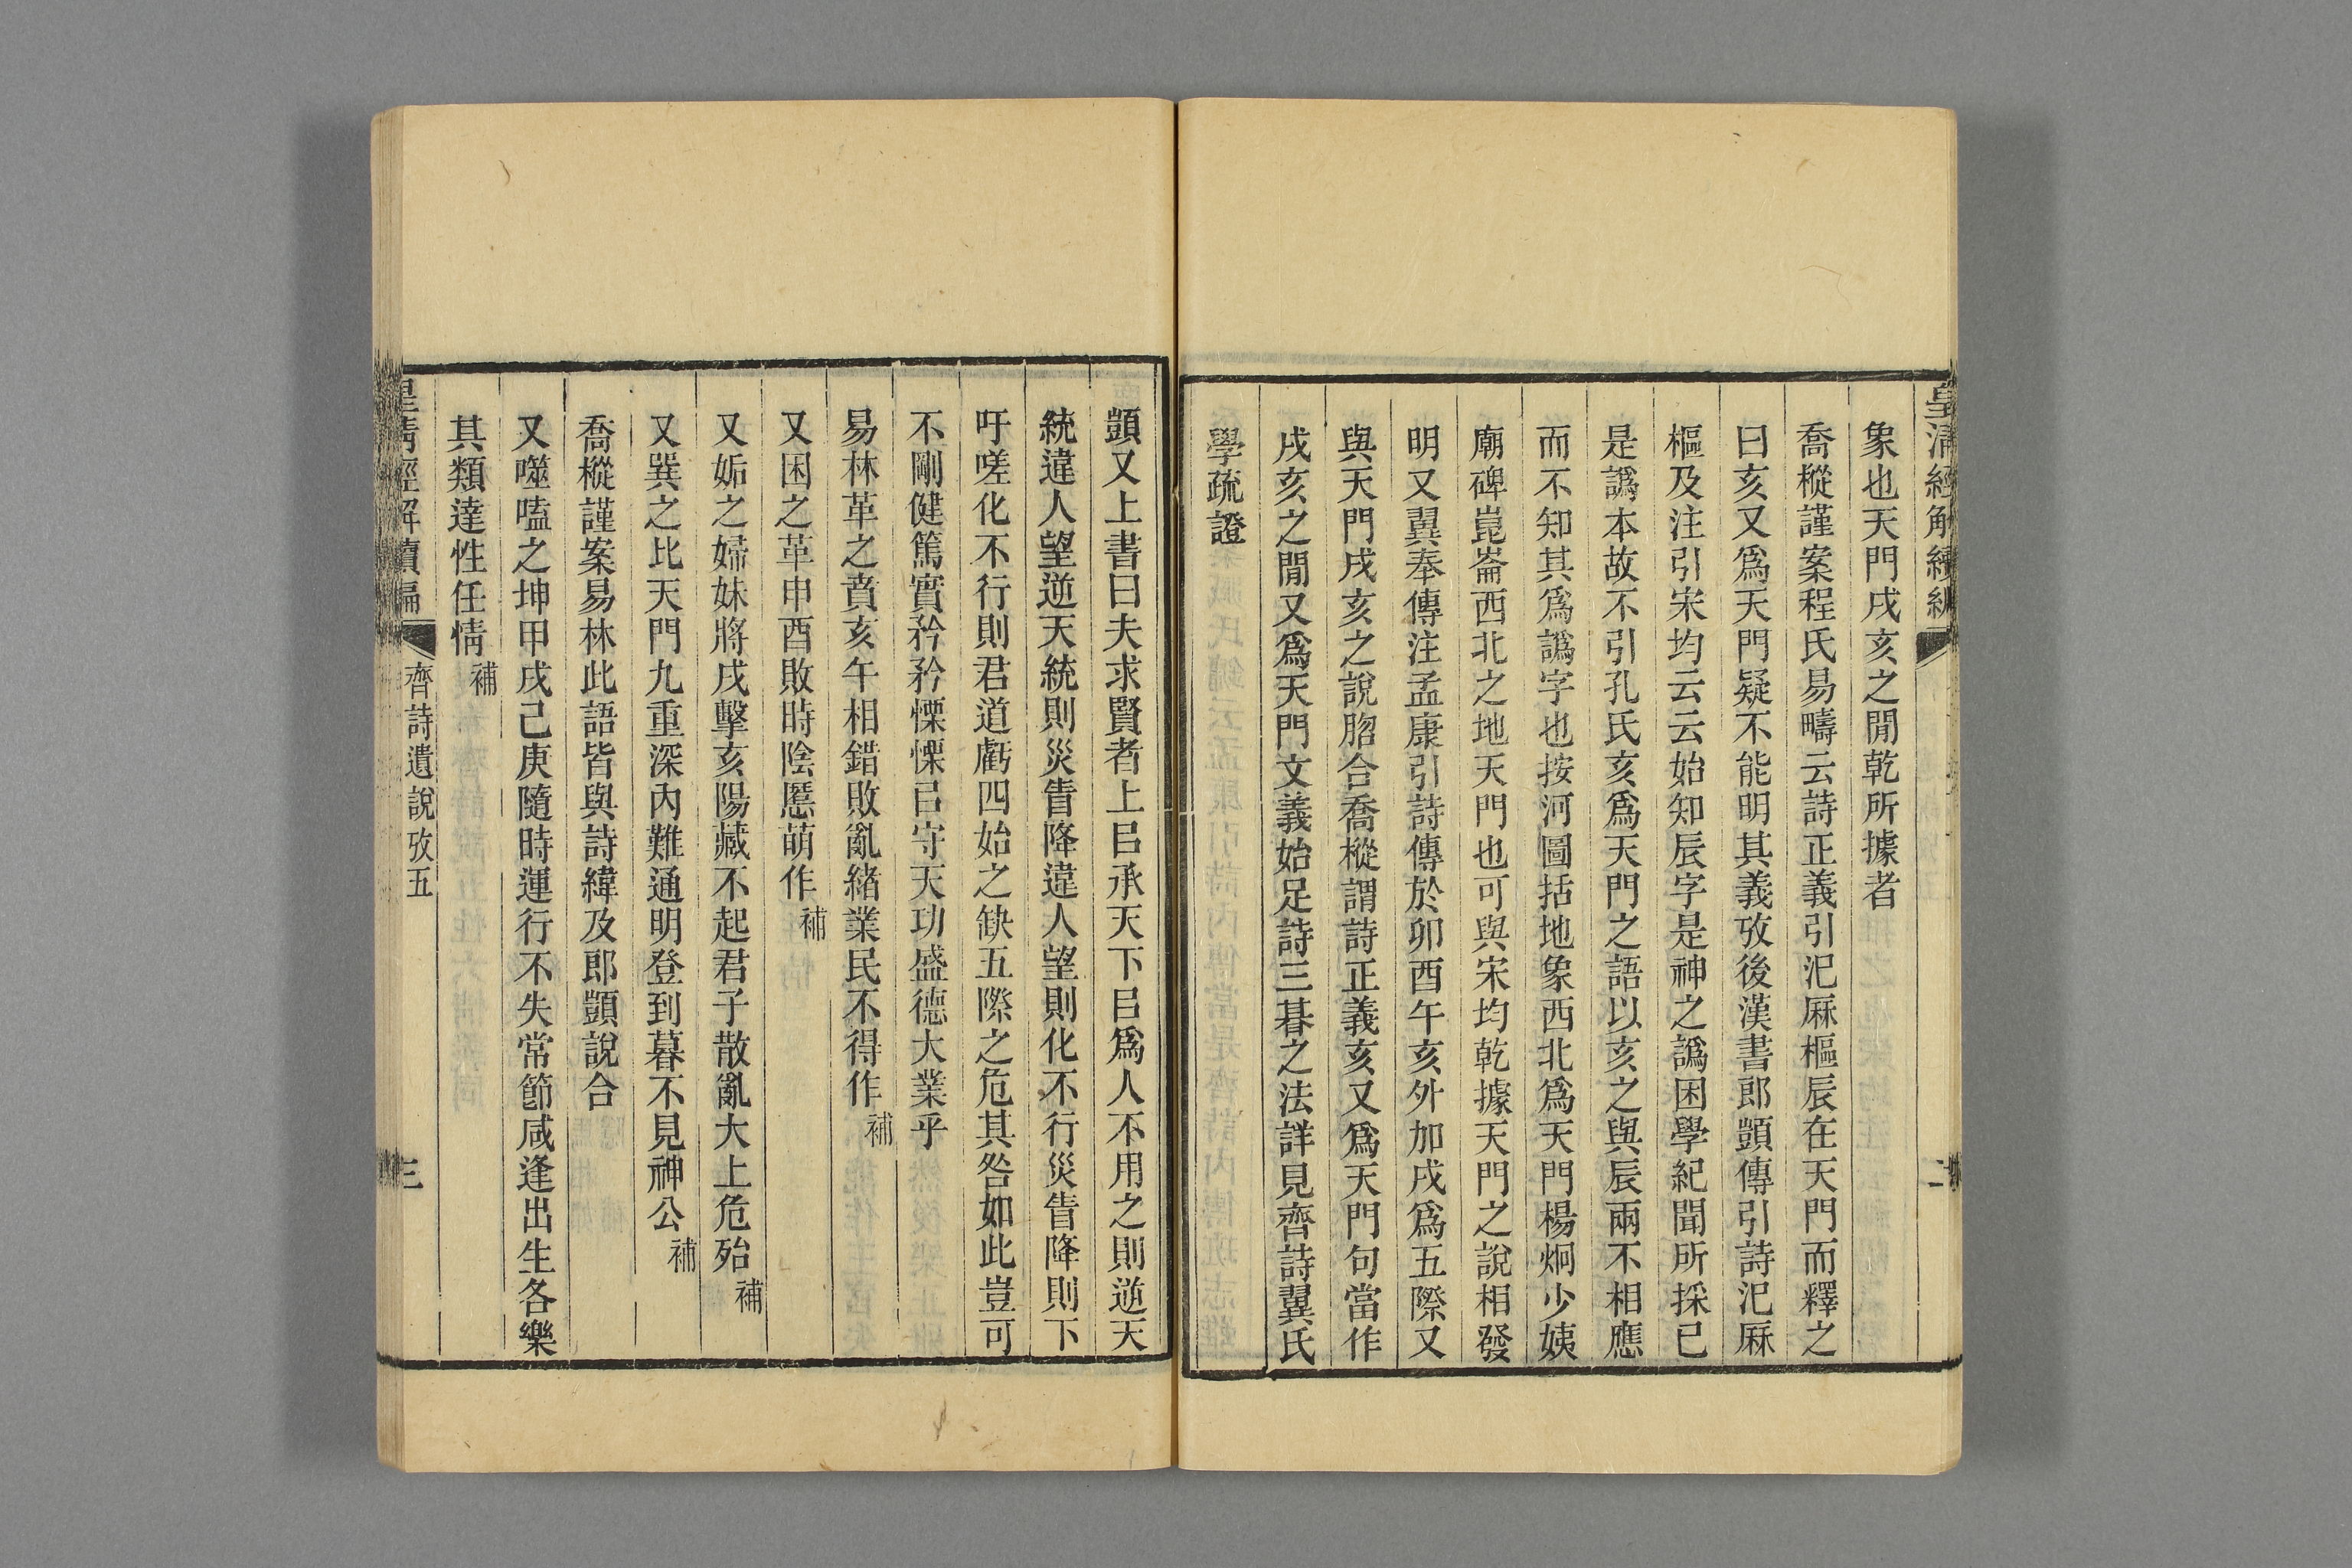 皇清經解續編
二
象也天門戌亥之閒乾所據者
喬樅謹案程氏易疇云詩正義引汜厤樞辰在天門而釋之
曰亥又爲天門疑不能明其義攷後漢書郎顗傳引詩汜厤
樞及注引宋均云云始知辰字是神之譌困學紀聞所採已
是譌本故不引孔氏亥爲天門之語以亥之與辰兩不相應
而不知其爲譌字也按河圖括地象西北爲天門楊炯少姨
廟碑崑崙西北之地天門也可與宋均乾據天門之說相發
明又翼奉傳注孟康引詩傳於卯酉午亥外加戌爲五際又
與天門戌亥之說脗合喬樅謂詩正義亥又爲天門句當作
戌亥之閒又爲天門文義始足詩三朞之法詳見齊詩翼氏
學疏證
顗又上書曰夫求賢者上㠯承天下㠯爲人不用之則逆天
統違人望逆天統則災眚降違人望則化不行災眚降則下
吁嗟化不行則君道虧四始之缺五際之危其咎如此豈可
不剛健篤實矜矜慄慄㠯守天功盛德大業乎
易林革之賁亥午相錯敗亂緒業民不得作補
又困之革申酉敗時陰慝萌作補
又姤之婦妹將戌擊亥陽藏不起君子散亂大上危殆補
又巽之比天門九重深內難通明登到暮不見神公補
喬樅謹案易林此語皆與詩緯及郎顗說合
又噬嗑之坤甲戌己庚隨時運行不失常節咸逢出生各樂
其類達性任情補
皇清經解續編
齊詩遺說攷五
三